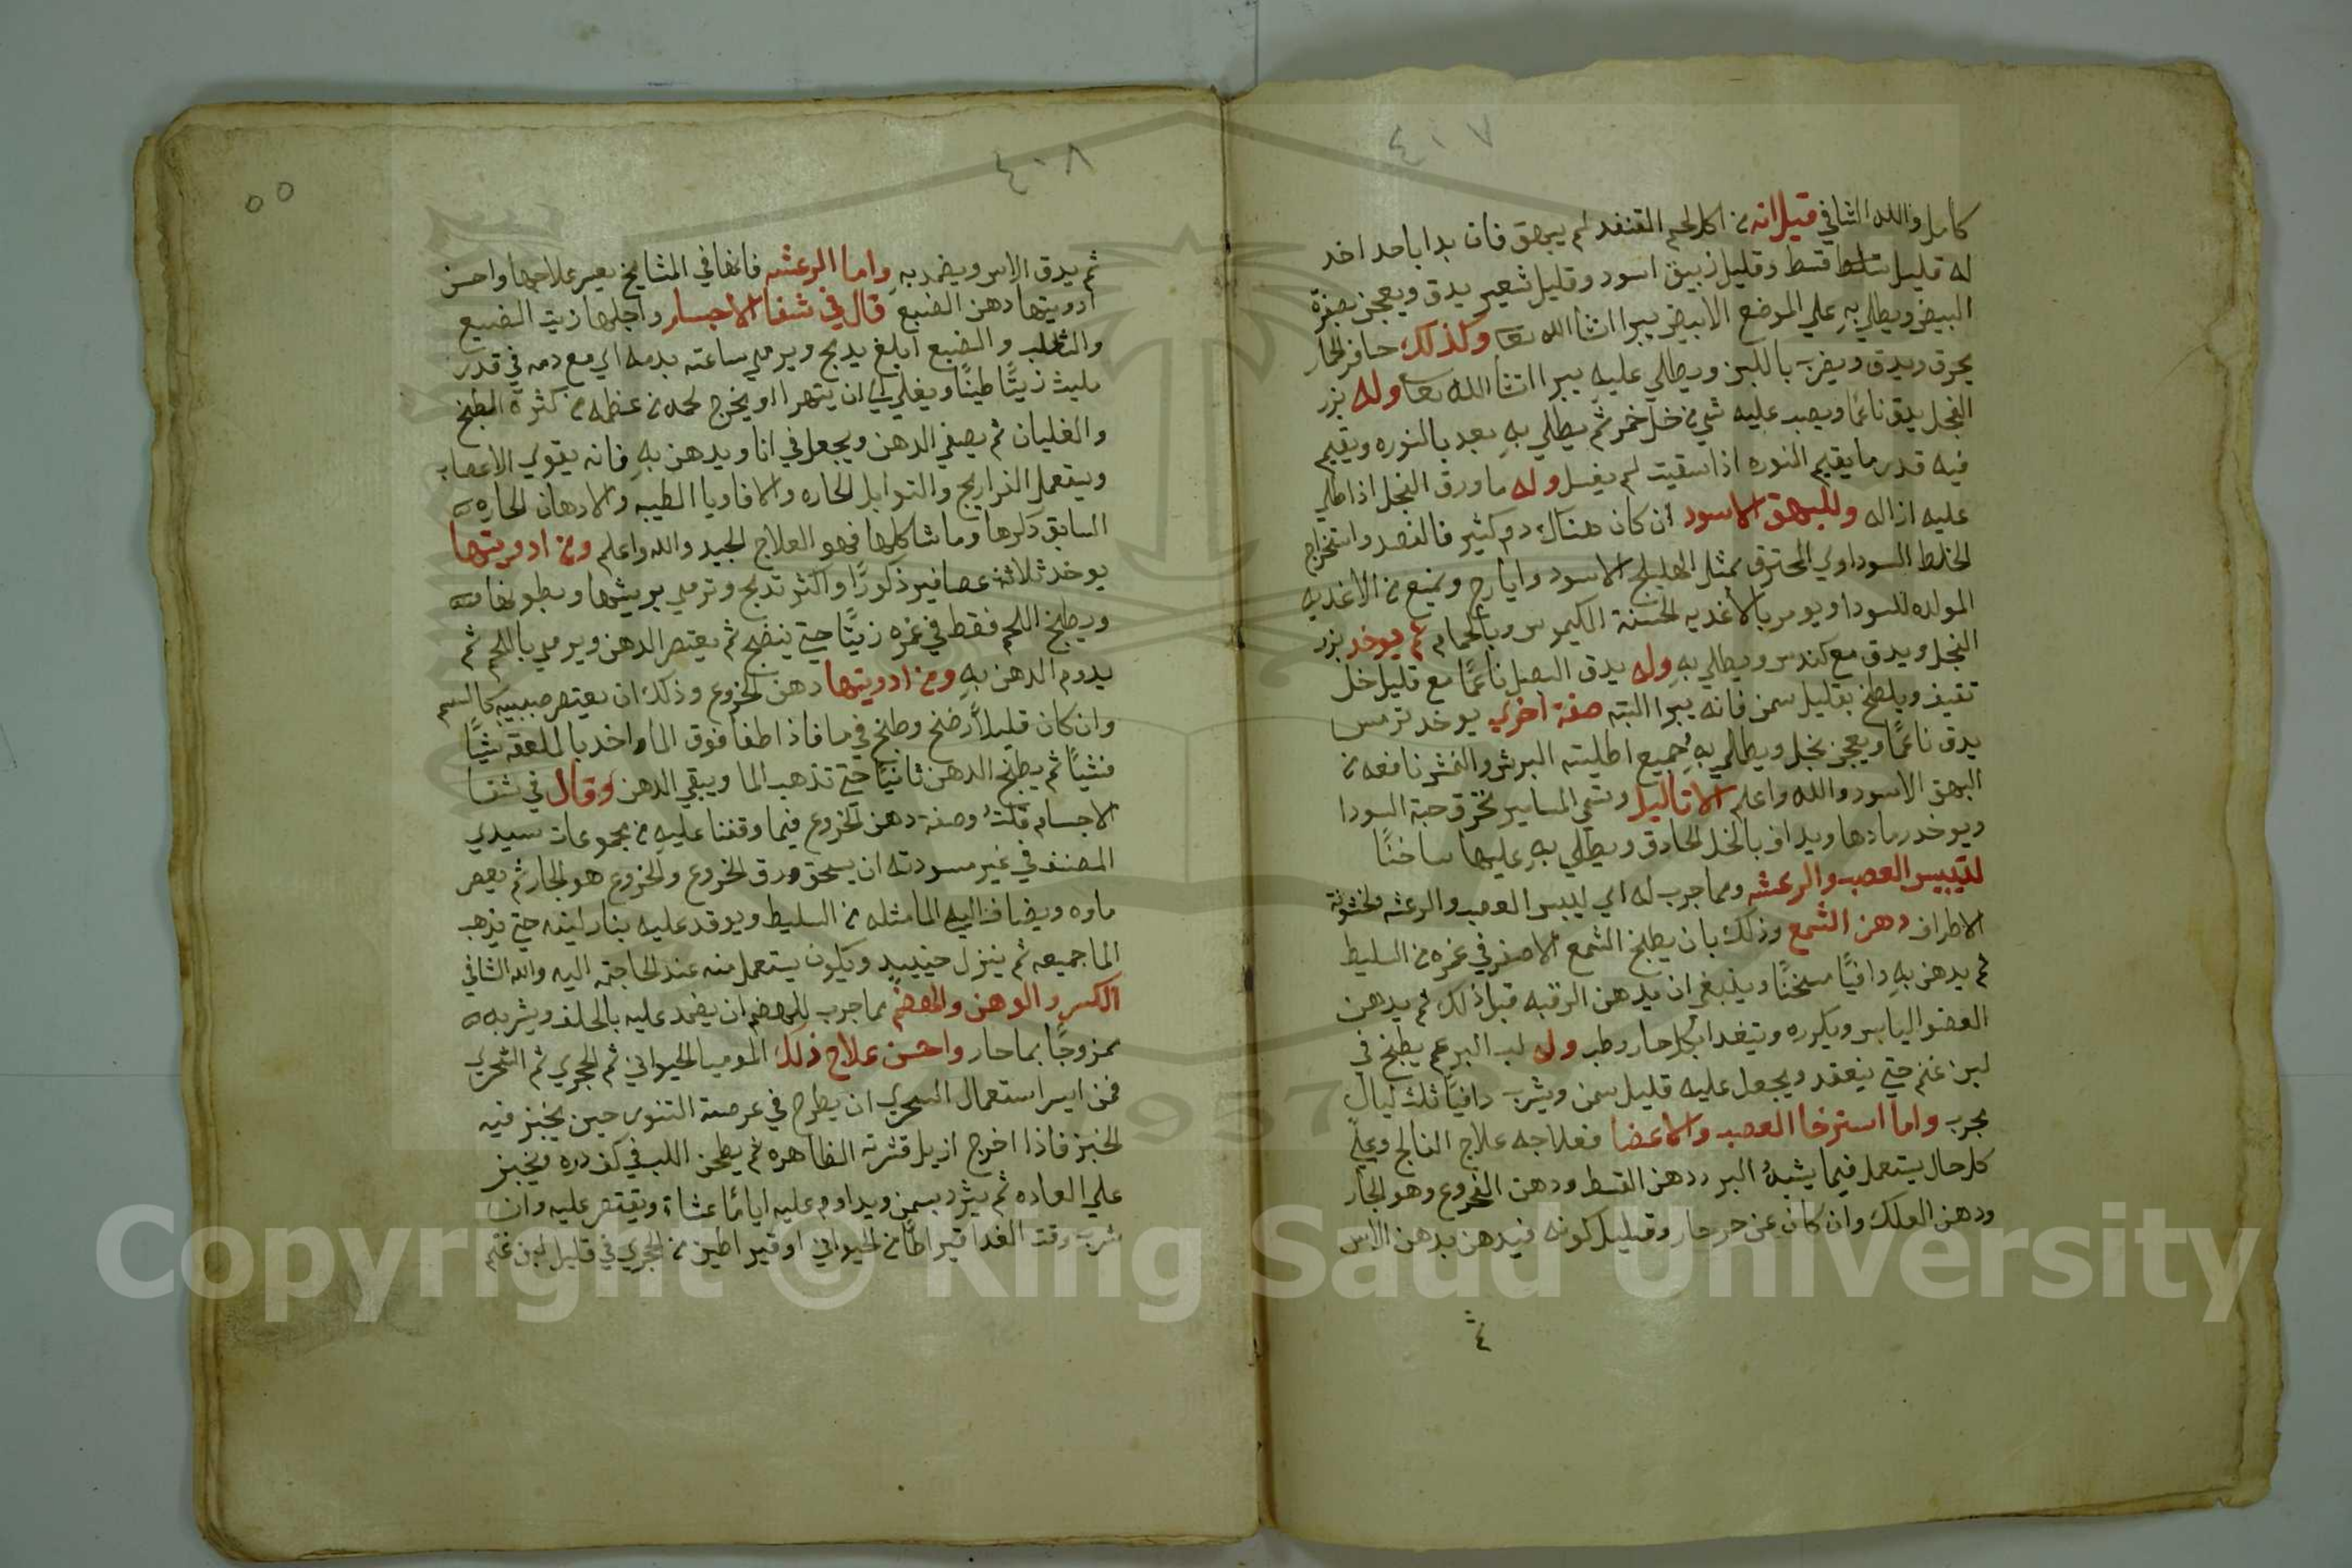 ٤٠٧
كامل والله الشافي قيل انه من اكل لحم القنفد لم يبهق فان بدا باحد اخد
له قليل قسط وقليل زبيق اسود وقليل شعير يدق ويعجن بصفرة
البيض ويطلي به علي الموضع الابيض يبرا انشا الله تعا وكذلك حافر الحمار
يحرق ويدق ويضرب باللبن ويطلي عليه يبرا انشا الله تعا وله بزر
الفجل يدق ناعما ويصب عليه شي من خل خمر ثم يطلي به بعد بالنوره ويقيم
فيه قدر ما يقيم النوره اذا سقيت لم يغسل وله ما ورق الفجل اذا طلي
عليه ازاله وللبهق الاسود ان كان هناك دم كثير فالفصد واستخراج
الخلط السوداوي المحترق بمثل الهليلج الاسود وايارج ويمنع من الاغديه
المولده للسودا ويومر بالاغديه الحسنة الكيموس وبالحمام ثم يوخد بزر
الفجل ويدق مع كندس ويطلي به وله يدق البصل ناعما مع قليل خل
ثقيف ويلطخ بقليل سمن فانه يبرا البته صفة اخري يوخد ترمس
يدق ناعما ويعجن بخل ويطلي به جميع اطليته البرش والنمش نافعه من
البهق الاسود والله واعلم الاثاليل وتسمي المسامير تحرق حبة السودا
ويوخد رمادها ويداف بالخل الحادق ويطلي به عليها ساخنا
لتيبيس العصب والرعشه ومما جرب له اي ليبس العصب والرعشه ولخشونة
الاطراف دهن الشمع وذلك بان يطبخ الشمع الاصفر في غمره من السليط
ثم يدهن به دافيا مسخنا وينبغي ان يدهن الرقبه قبل ذلك ثم يدهن
العضو اليابس ويكرره ويتغدا بكل حار رطب وله لب البر عم يطبخ في
لبن غنم حتي ينعقد ويجعل عليه قليل سمن ويشرب دافيا ثلث ليال
مجرب واما استرخا العصب والاعضا فعلاجه علاج الفالج وعلي
كل حال يستعمل فيما يشبه البرد دهن القسط ودهن الخروع وهو الجار
ودهن العلك وان كان عن حر حار وقليل كونه فيدهن بدهن الاس
٤٠٨
٥٥
ثم يدق الاس ويضمد به واما الرعشه فانها في المشايخ يعسر علاجها واحسن
ادويتها دهن الضبع قال في شفا الاجسام واجلها زيت الضبع
والثعلب والضبع ابلغ يدبح ويرمي ساعته بدمه اي مع دمه في قدر
يليث زيتا طيبا ويغلي الي ان يتهرا او يخرج لحمه من عظمه من كثرة الطبخ
والغليان ثم يصفي الدهن ويجعل في انا ويدهن به فانه يقوي الاعصاب
ويستعمل الذراريج والتوابل الحاره والافاويا الطيبه والادهان الحاره
السابق دكرها وما شاكلها فهو العلاج الجيد والله واعلم ومن ادويتها
يوخد ثلاثة عصافير ذكورا واكثر تدبح وترمي بريشها وبطونها
ويطبخ اللحم فقط في غمره زيتا حتي ينضج ثم يعتصر الدهن ويرمي باللحم ثم
يدوم الدهن به ومن ادويتها دهن الخروع وذلك ان يعتصر حبيبه كالسمسم
وان كان قليلا رضخ وطبخ في ما فاذا طفا فوق الما واخد بالملعقه شيا
فشيا ثم يطبخ الدهن ثانيا حتي تذهب الما ويبقي الدهن وقال في شفا
الاجسام قلت وصفة دهن الخروع فيما وقفنا عليه من مجموعات سيدي
المصنف في غير مسودته ان يسحق ورق الخروع والخروع هو الجار ثم يعصر
ماوه ويضاف اليه الما مثله من السليط ويوقد عليه بنار لينه حتي يذهب
الما جميعه ثم ينزل حينيد ويكون يستعمل منه عند الحاجة اليه والله الشافي
الكسر والوهن والهضم مما جرب للهضم ان يضمد عليه بالحلف ويشربه
ممزوجا بما حار واحسن علاج ذلك الموميا الحيواني ثم الحجري ثم الشجري
فمن ايسر استعمال الشجري ان يطرح في عرصة التنور حين يخبز فيه
الخبز فاذا اخرج ازيل قشرته الظاهره ثم يطحن اللب في كف دره ويخبز
علي العاده ثم يثرد بسمن ويداوم عليه اياما عشاة ويقتصر عليه وان
شرب وقت الغدا قيراطا من الحيواني او قيراطين من الحجري في قليل لبن غنم
Copyright © King Saud University
1957